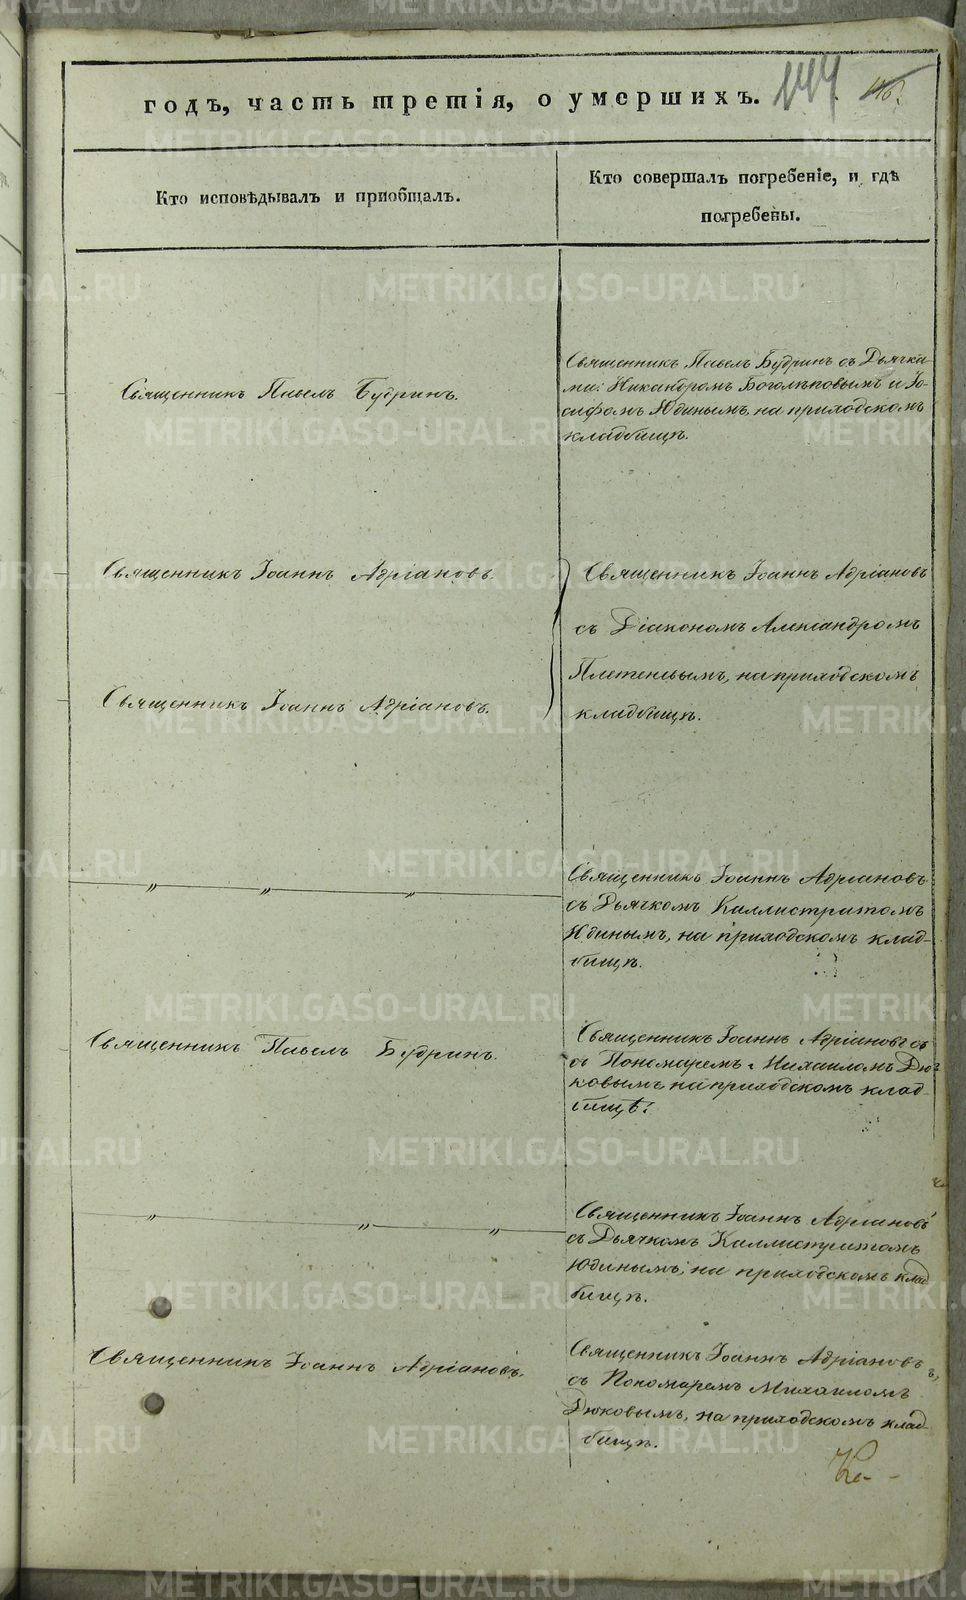 годъ, часть третія, о умершихъ.
144
146.
Кто исповѣдывалъ и приобщалъ.
Кто совершалъ погребеніе, и гдѣ
погребены.
Священникъ Павелъ Будринъ.
Священникъ Павелъ Будринъ съ Дьячка-
ми: Никандромъ Боголѣповымъ и Іо-
сифомъ Юдинымъ, на приходскомъ
кладбищѣ.
Священникъ Іоаннъ Адріановъ.
Священникъ Іоаннъ Адріановъ.
Священникъ Іоаннъ Адріановъ
съ Діакономъ Александромъ
Плетеневымъ, на приходскомъ
кладбищѣ.
— „ — „ — „ —
Священникъ Іоаннъ Адріановъ
съ Дьячкомъ Каллистратомъ
Юдинымъ, на приходскомъ клад-
бищѣ.
Священникъ Павелъ Будринъ.
Священникъ Іоаннъ Адріановъ съ
съ Пономаремъ Михаиломъ Дю-
ковымъ на приходскомъ клад-
бищѣ.
— „ — „ — „ —
Священникъ Іоаннъ Адріановъ
съ Дьячкомъ Каллистратомъ
Юдинымъ, на приходскомъ клад
бищѣ.
Священникъ Іоаннъ Адріановъ.
Священникъ Іоаннъ Адріановъ,
съ Пономаремъ Михаиломъ
Дюковымъ, на приходскомъ клад-
бищѣ.
METRIKI.GASO-URAL.RU